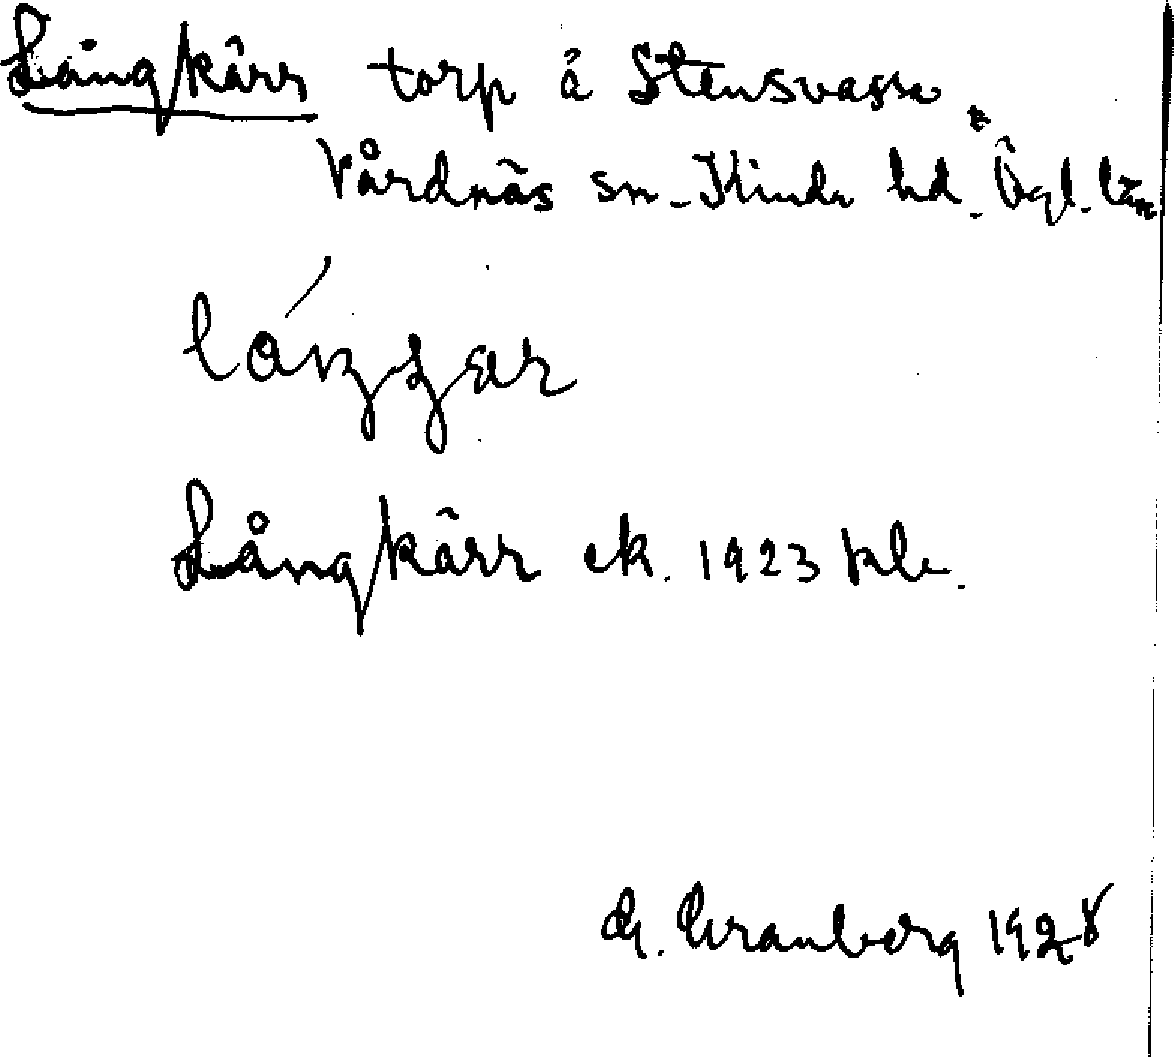 Långkärr torp å Stensvassa
Vårdnäs sn. Kinda hd. Ögl. län
Långkärr ek. 1923 kb.
G. Granberg 1928